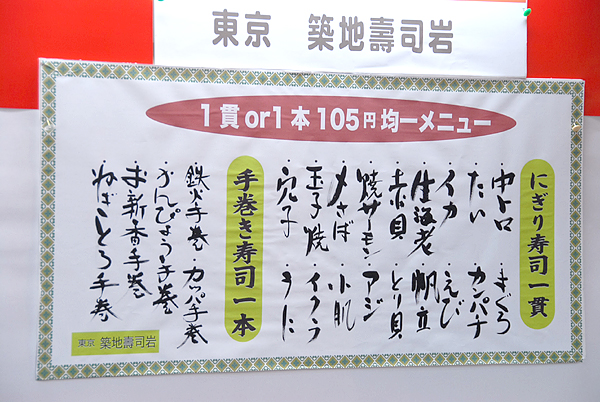 東京 築地壽司岩
1貫or1本105円均一メニュー
にぎり寿司一貫
・中トロ ・まぐろ
・たい ・カンパチ
・イカ ・えび
・生海老 ・帆立
・赤貝 ・とり貝
・焼サーモン ・アジ
・〆さば ・小肌
・玉子焼 ・イクラ
・穴子 ・うに
手巻き寿司一本
・鉄火手巻 ・カッパ手巻
・かんぴょう手巻
・お新香手巻
・ねぎとろ手巻
東京 築地壽司岩